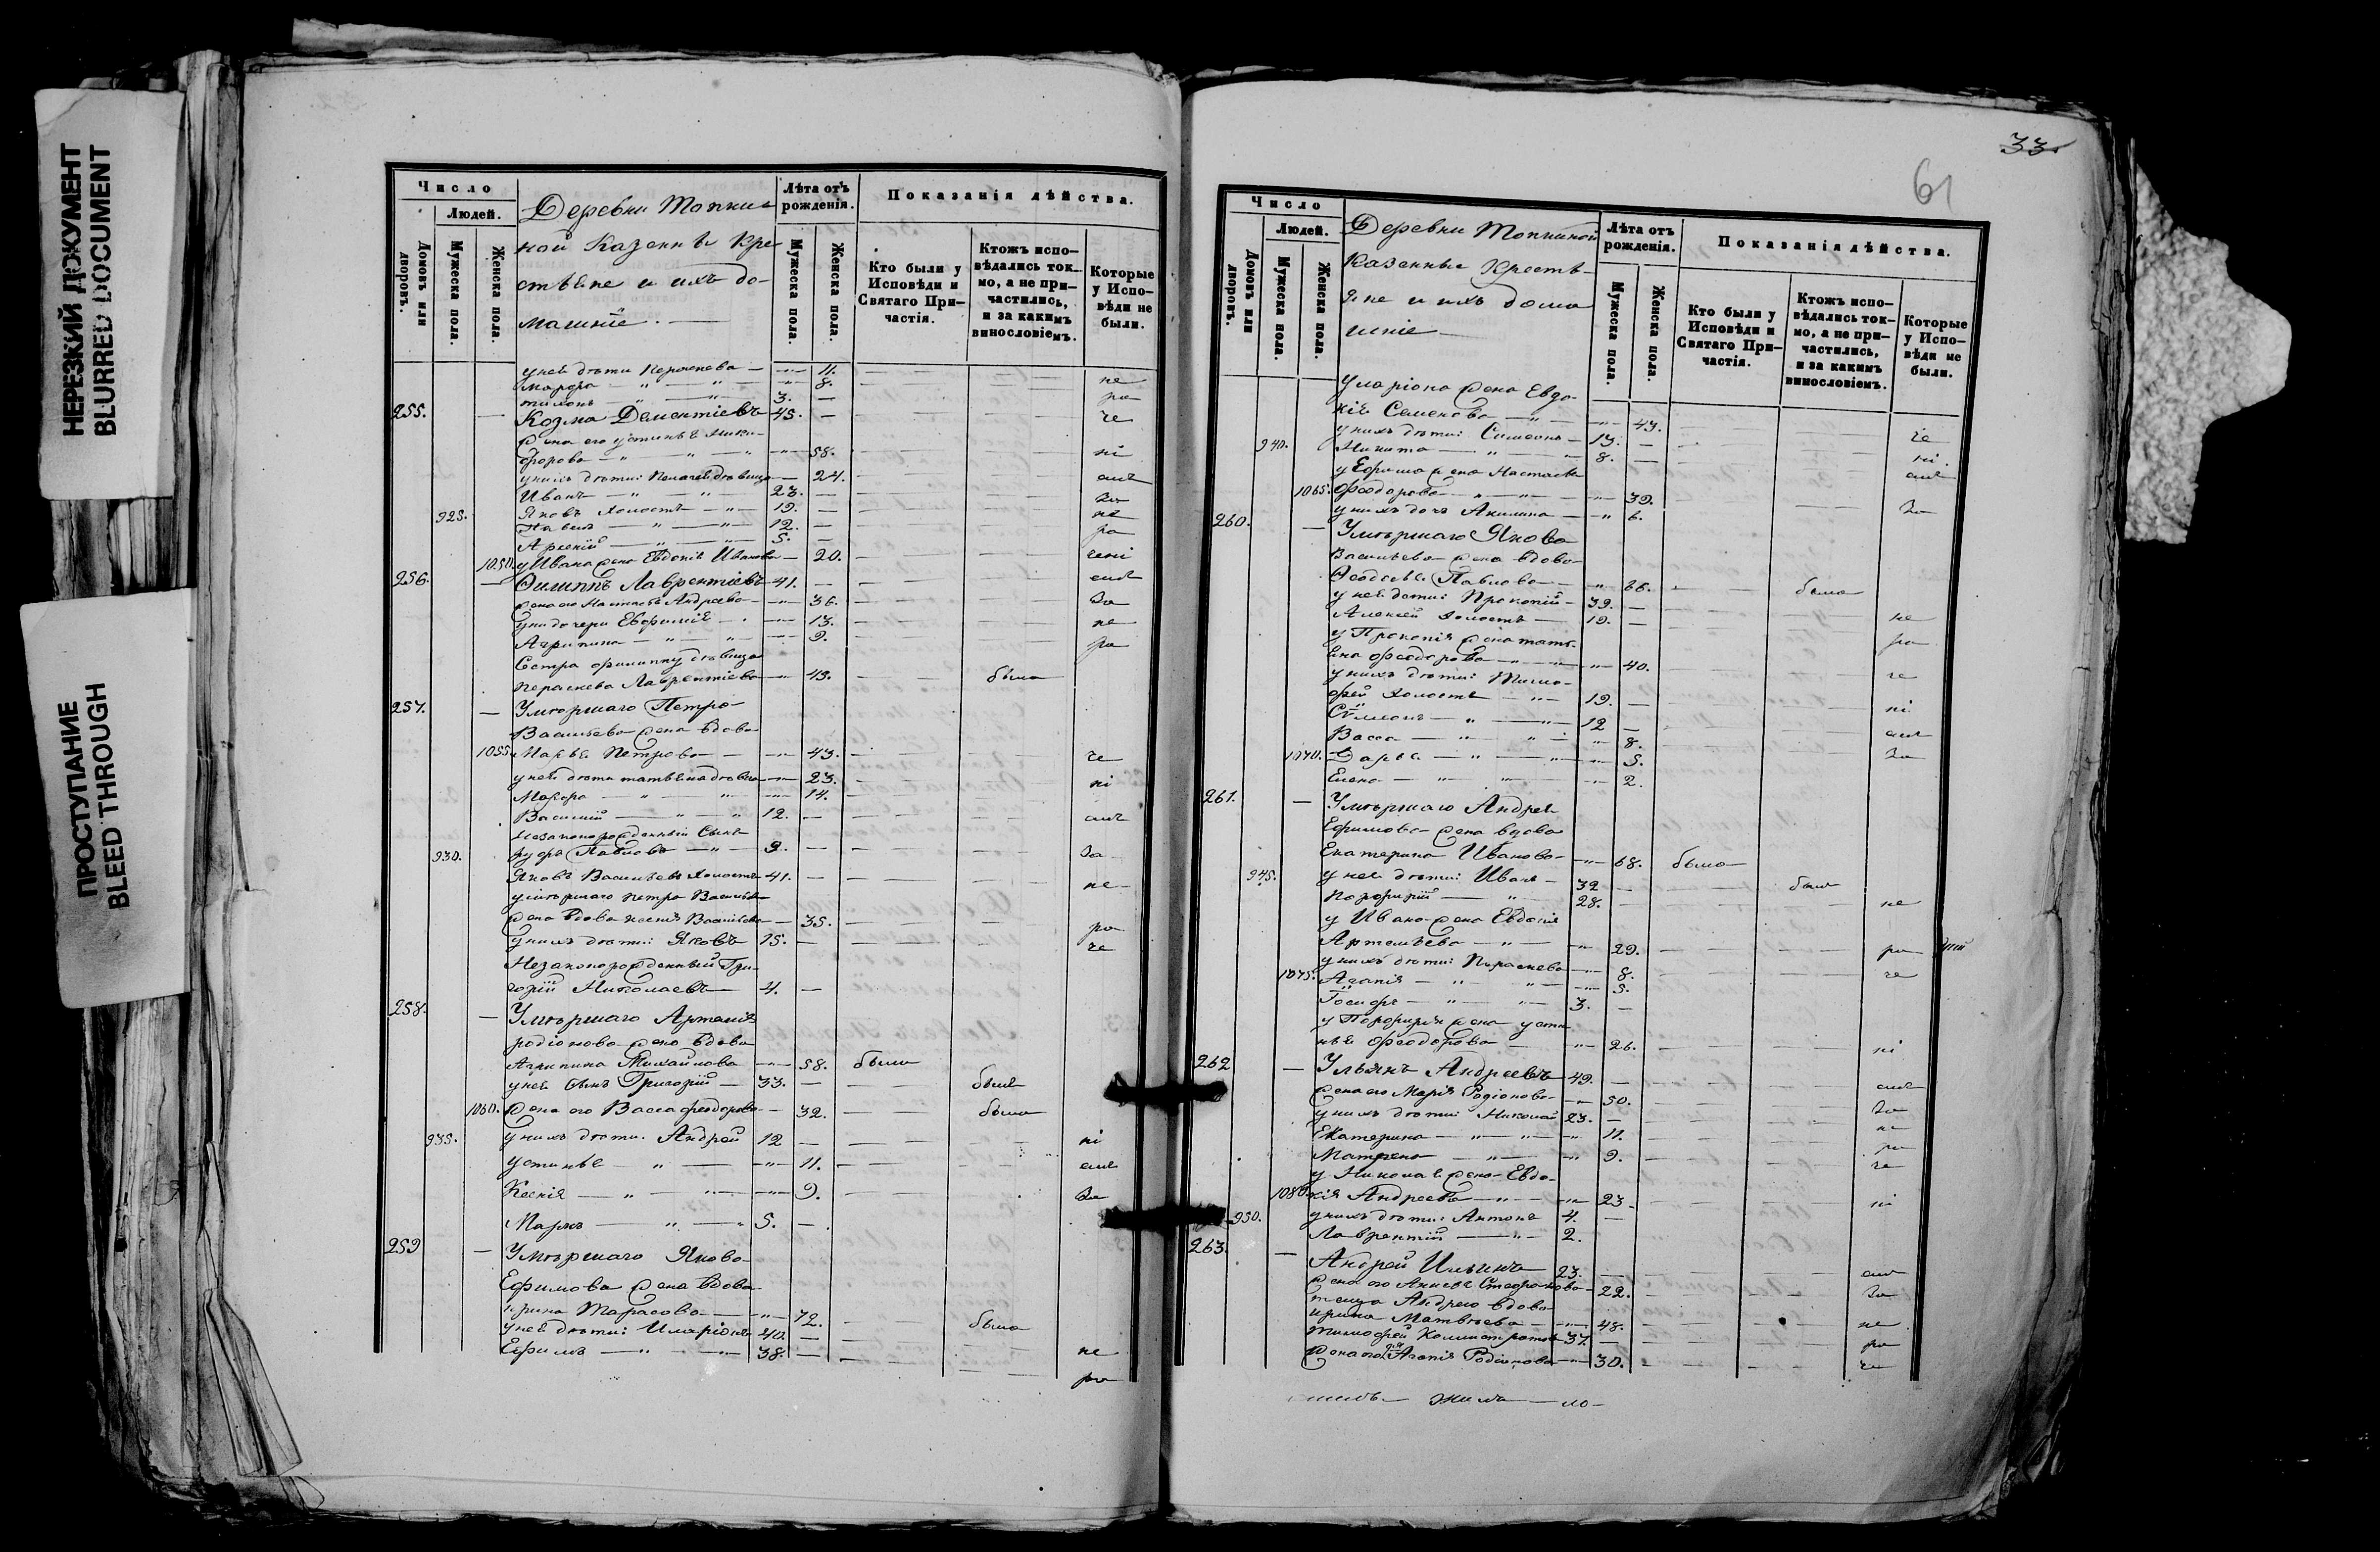 НЕРЕЗКИЙ ДОКУМЕНТ
BLURRED DOCUMENT
ПРОСТУПАНИЕ
BLEED THROUGH
Число
Людей.
Домовъ или дворовъ.
Мужеска пола.
Женска пола.
Деревни Топки-
ной Казенные Кре
стьяне и ихъ до-
машніе.
Лѣта отъ рожденія.
Мужеска пола.
Женска пола.
Показанія дѣйства.
Кто были у Исповѣди и Святаго При-частія.
Ктожъ испо-вѣдались ток-мо, а не при-частились, и за какимъ винословіемъ.
Которые у Испо-вѣди не были.
у неё дѣти Параскева 11. не
Марфа 8. ра
Тихонъ 3.
255. Козма Дементіевъ 45. че
Жена его Устинья Ники-
форова 58. ні
у нихъ дѣти: Пелагея дѣвица 24. емъ
Иванъ 23. За
925. Яковъ Холостъ 19. не
Павелъ 12. ра
Арсеній 5.
1050. у Ивана жена Евдокія Иванова 20. чені
256. Филиппъ Лаврентіевъ 41. емъ
Жена его Настасья Андреева 36. За
у нихъ дочери Евфимія 13. не
Агрипина 9. ра
Сестра Филиппу дѣвица
Параскева Лаврентіева 43. была
257. Умершаго Петра
Васильева жена вдова
1055. Марья Петрова 43. че
у неё дѣти Татьяна дѣвица 23. ні
Марфа 14.
Василій 12. емъ
Незаконорожденный Сынъ
930. Павловъ 9. За
Яковъ Васильевъ Холостъ 41. не
умершаго Петра Васильева
жена вдова Васильева 35. ра
у нихъ дѣти: Яковъ 15. че
Незаконорожденный Гри-
горій Николаевъ 4.
258. Умершаго Артемія
Родіонова жена вдова
Агрипина Михайлова 58. была
у неё сынъ Григорій 33. былъ
1060. Жена его Васса Феодорова 32. была
935. у нихъ дѣти. Андрей 12 ні
Устинья 11. емъ
Ксенія 9. За
Маркъ 5.
259 Умершаго Якова
Ефимова жена вдова
Ирина Тарасова 72. была
у неё дѣти: Иларіонъ 40. не
Ефимъ 38. ра
33.
61
Число
Людей.
Домовъ или дворовъ.
Мужеска пола.
Женска пола.
Деревни Топкиной
Казенные Кресть-
яне и ихъ дома
шніе
Лѣта отъ рожденія.
Мужеска пола.
Женска пола.
Показанія дѣйства.
Кто были у Исповѣди и Святаго При-частія.
Ктожъ испо-вѣдались ток-мо, а не при-частились, и за какимъ винословіемъ.
Которые у Испо-вѣди не были.
У Иларіона жена Евдо-
кія Семенова 43. че
940. у нихъ дѣти: Симеонъ 13. ні
Никита 8.
у Ефима жена Настасья емъ
1065. Феодорова 39.
у нихъ дочь Акилина 6. За
260. Умершаго Якова
Васильева жена вдова
Феодосья Павлова 66. была
у неё дѣти: Прокопій 39. не
Алексей Холостъ 19. ра
у Прокопія жена Тать-
яна Феодорова 40. че
у нихъ дѣти: Тимо-
фей Холостъ 19. ні
Сѵмеонъ 12 емъ
Васса 8. За
1070. Дарья 5.
Елена 2.
261. Умершаго Андрея
Ефимова жена вдова
Екатерина Иванова 68. была
945. у неё дѣти: Иванъ 32 былъ
Порфирій 28. не
у Ивана жена Евдокія
Артемьева 29. ра
у нихъ дѣти: Параскева 8. че
1075. Агапія 5.
Іосифъ 3.
у Порфирія жена Усти
нья Феодорова 26. ні
262 Ульянъ Андреевъ 49. емъ
Жена его Марія Родіонова 50. За
у нихъ дѣти: Николай 23. не
Екатерина 11. ра
Матрена 9. че
у Николая жена Евдо-
1080. кія Андреева 23. ні
950. у нихъ дѣти: Антонъ 4.
Лаврентій 2.
263. Андрей Ильинъ 23. емъ
Жена его Анисья Стефанова 22. За
теща Андрею вдова
Ирина Матвѣева 48. не
Тимофей Калистратовъ 37. ра
Жена его Агапія Родіонова 30. че